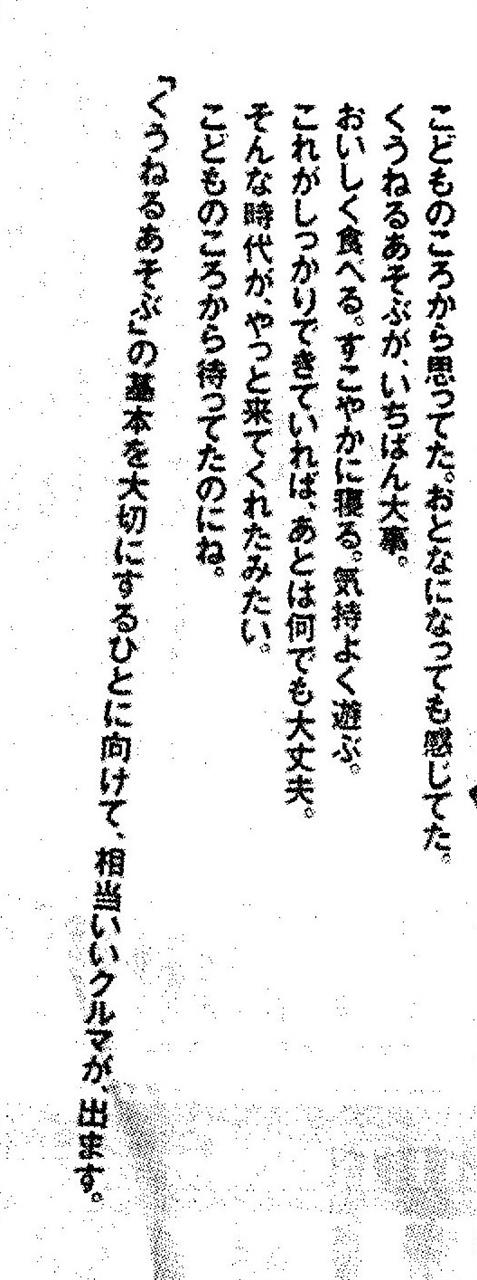 こどものころから思ってた。おとなになっても感じてた。
くうねるあそぶが、いちばん大事。
おいしく食べる。すこやかに寝る。気持よく遊ぶ。
これがしっかりできていれば、あとは何でも大丈夫。
そんな時代が、やっと来てくれたみたい。
こどものころから待ってたのにね。
「くうねるあそぶ」の基本を大切にするひとに向けて、相当いいクルマが、出ます。